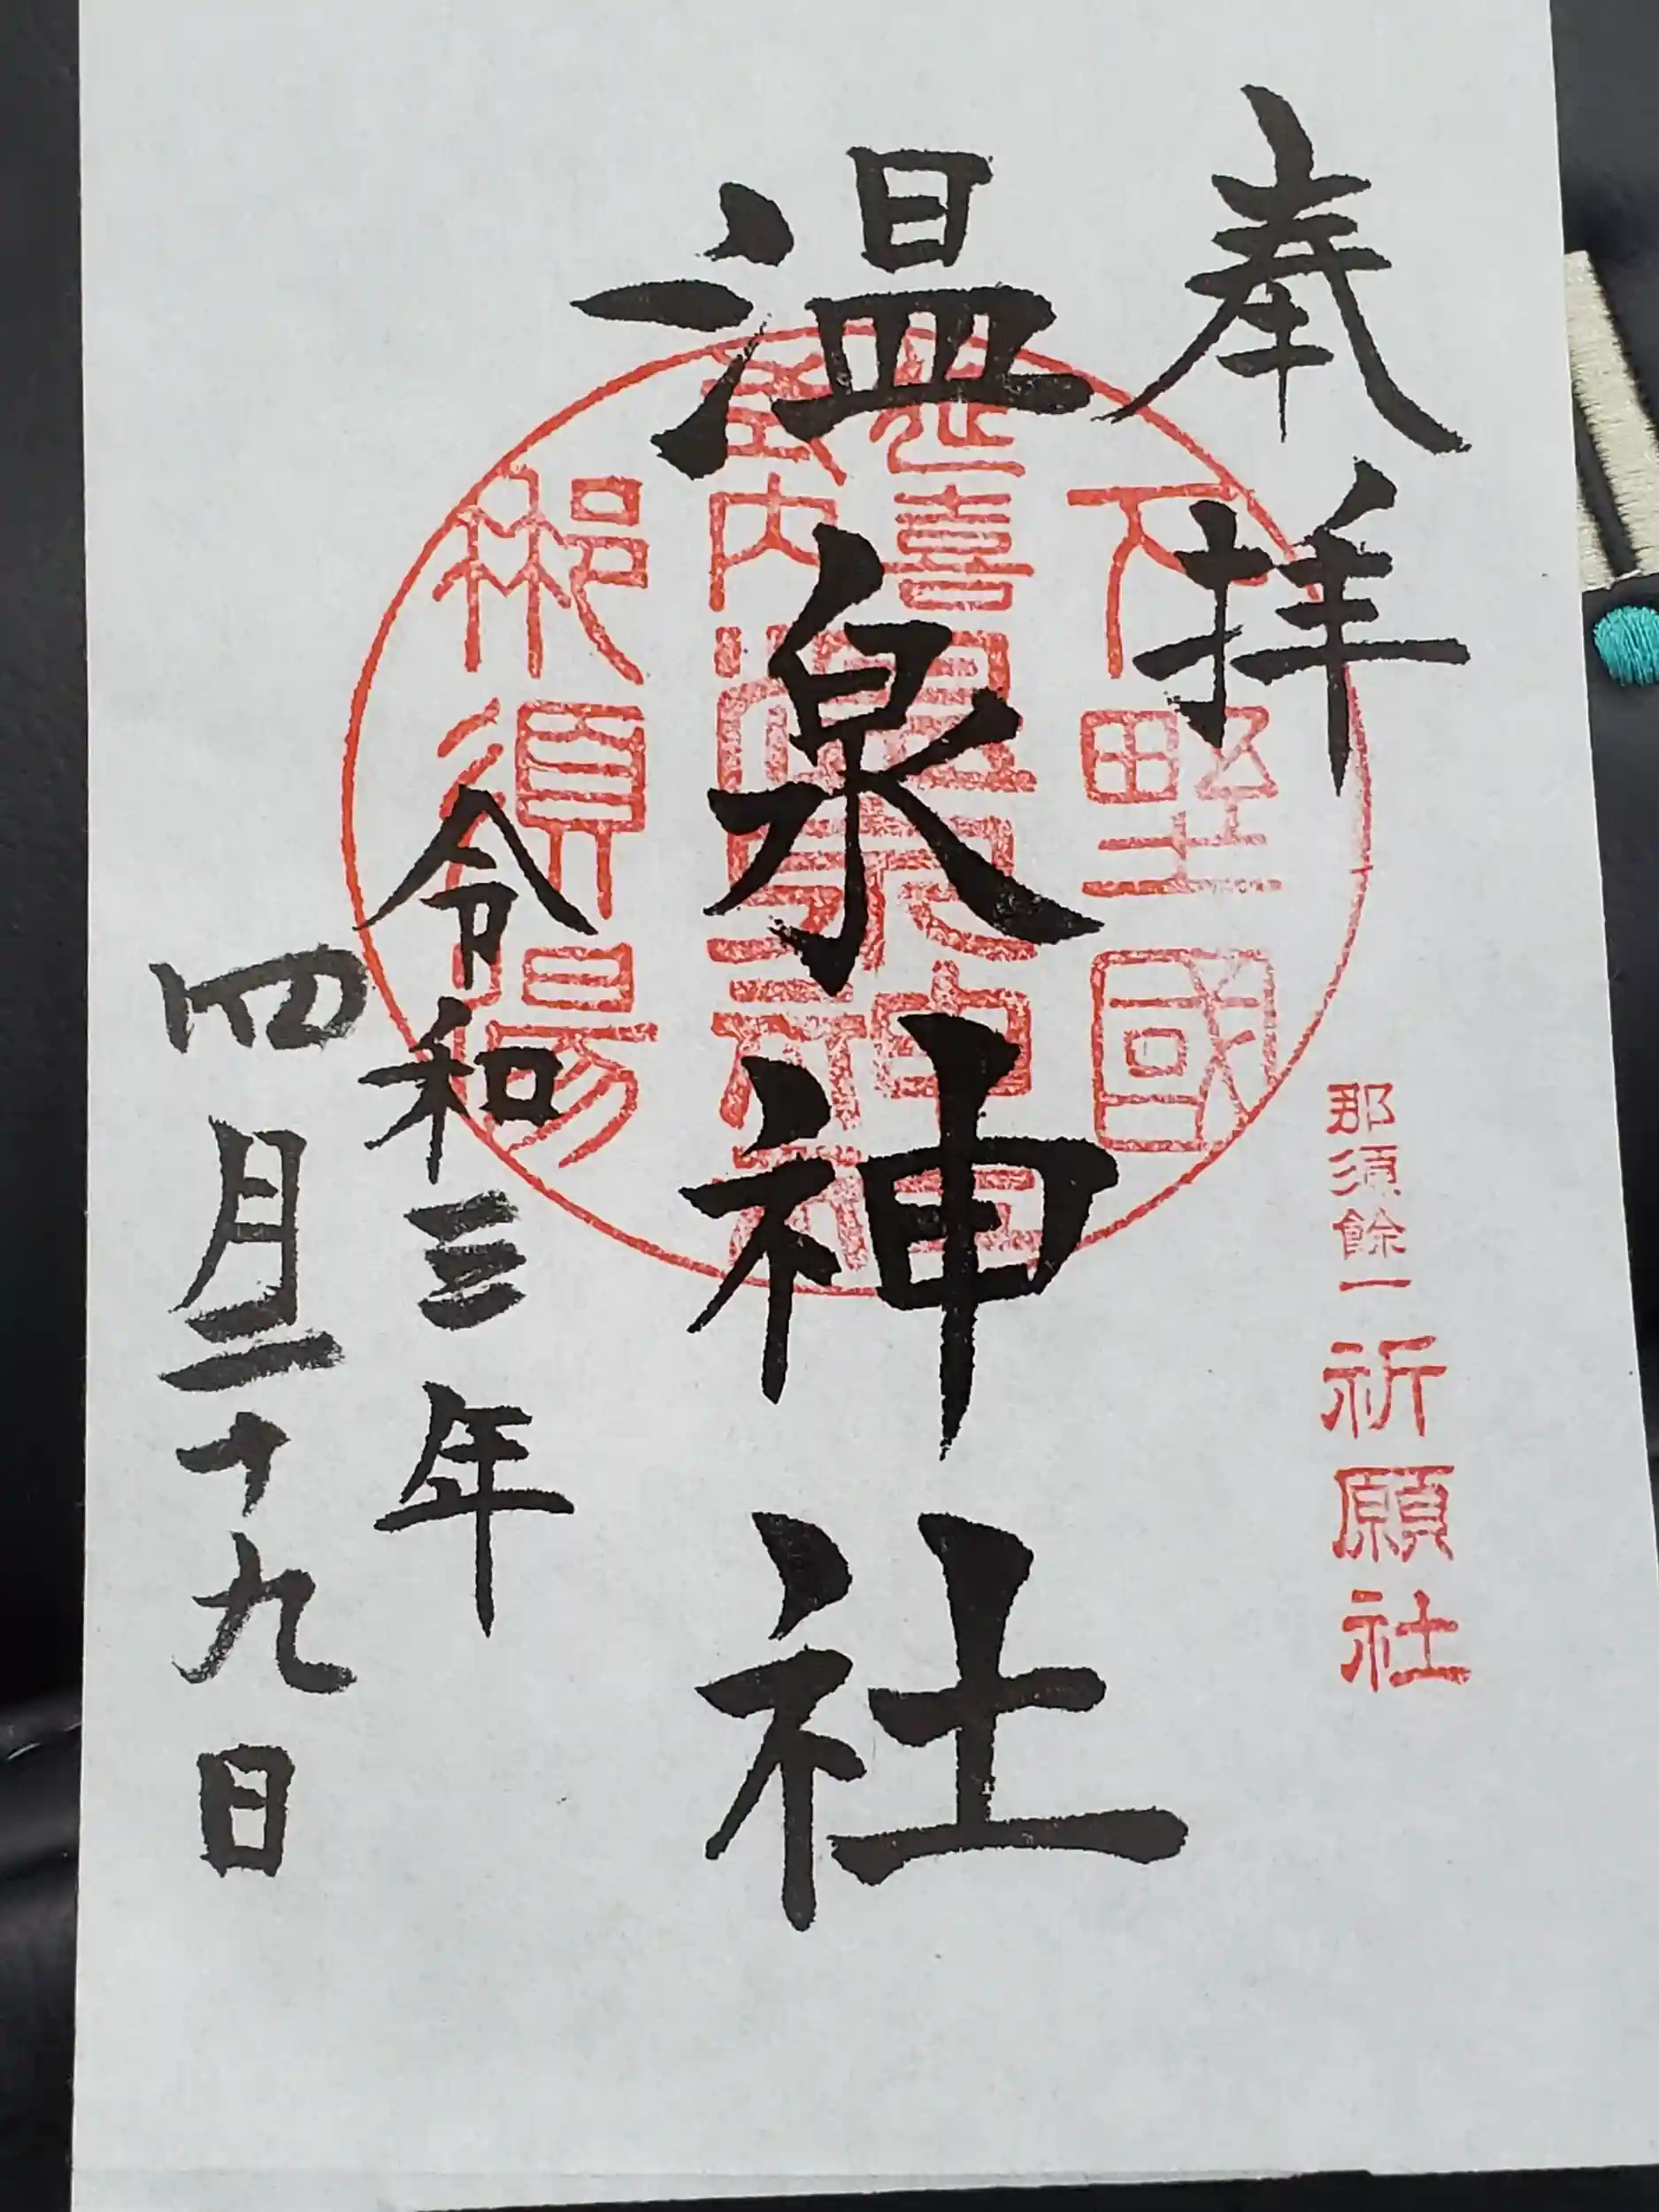 奉拝
那須餘一 祈願社
温泉神社
下野國
延喜
式内
温泉神社
那須湯
令和三年
四月二十九日